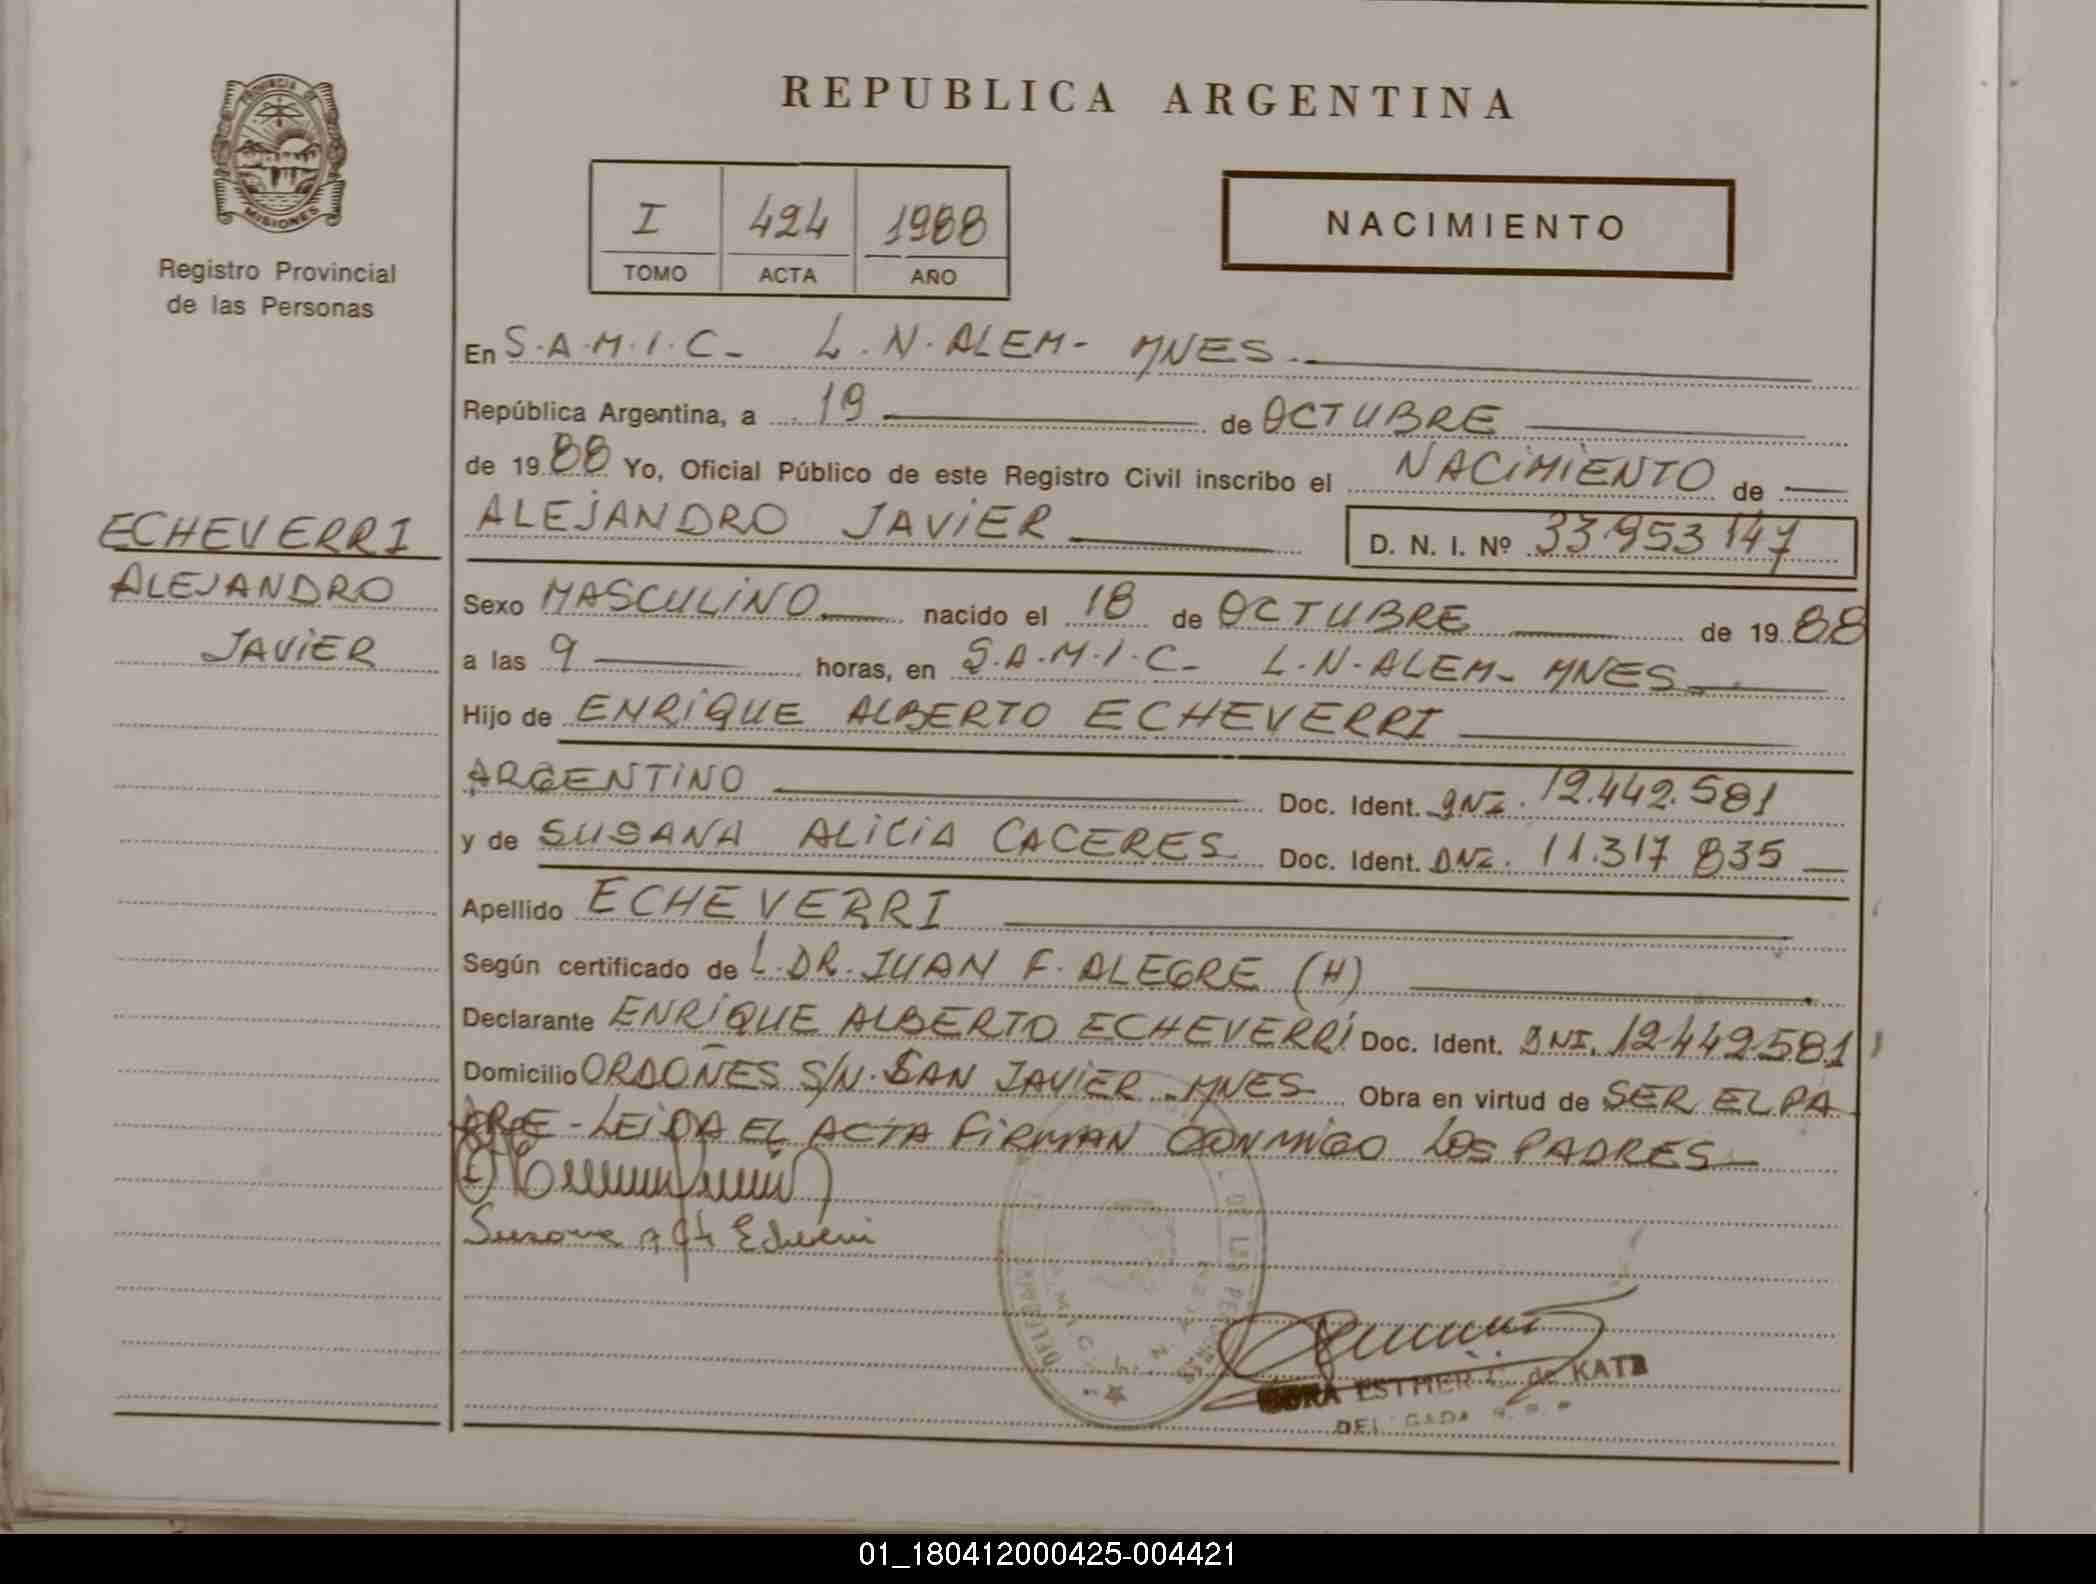 REPUBLICA ARGENTINA
PROVINCIA DE
MISIONES
Registro Provincial
de las Personas
I 424 1988
TOMO ACTA AÑO
NACIMIENTO
En S.A.M.I.C- L.N.ALEM- MNES.
República Argentina, a 19 de OCTUBRE
de 1988 Yo, Oficial Público de este Registro Civil inscribo el NACIMIENTO de
ALEJANDRO JAVIER D. N. I. Nº 33.953 147
ECHEVERRI
ALEJANDRO
JAVIER
Sexo MASCULINO nacido el 18 de OCTUBRE de 1988
a las 9 horas, en S.A.M.I.C- L.N.ALEM- MNES
Hijo de ENRIQUE ALBERTO ECHEVERRI
ARGENTINO Doc. Ident. DNI. 12.442.581
y de SUSANA ALICIA CACERES Doc. Ident. DNI. 11.317 835
Apellido ECHEVERRI
Según certificado de L.DR.JUAN F. ALEGRE (H)
Declarante ENRIQUE ALBERTO ECHEVERRI Doc. Ident. DNI. 12.442.581
Domicilio ORDOÑES S/N. SAN JAVIER -MNES Obra en virtud de SER EL PA
DRE - LEIDA EL ACTA FIRMAN CONMIGO LOS PADRES
ESTHER C. de KATZ
01_180412000425-004421